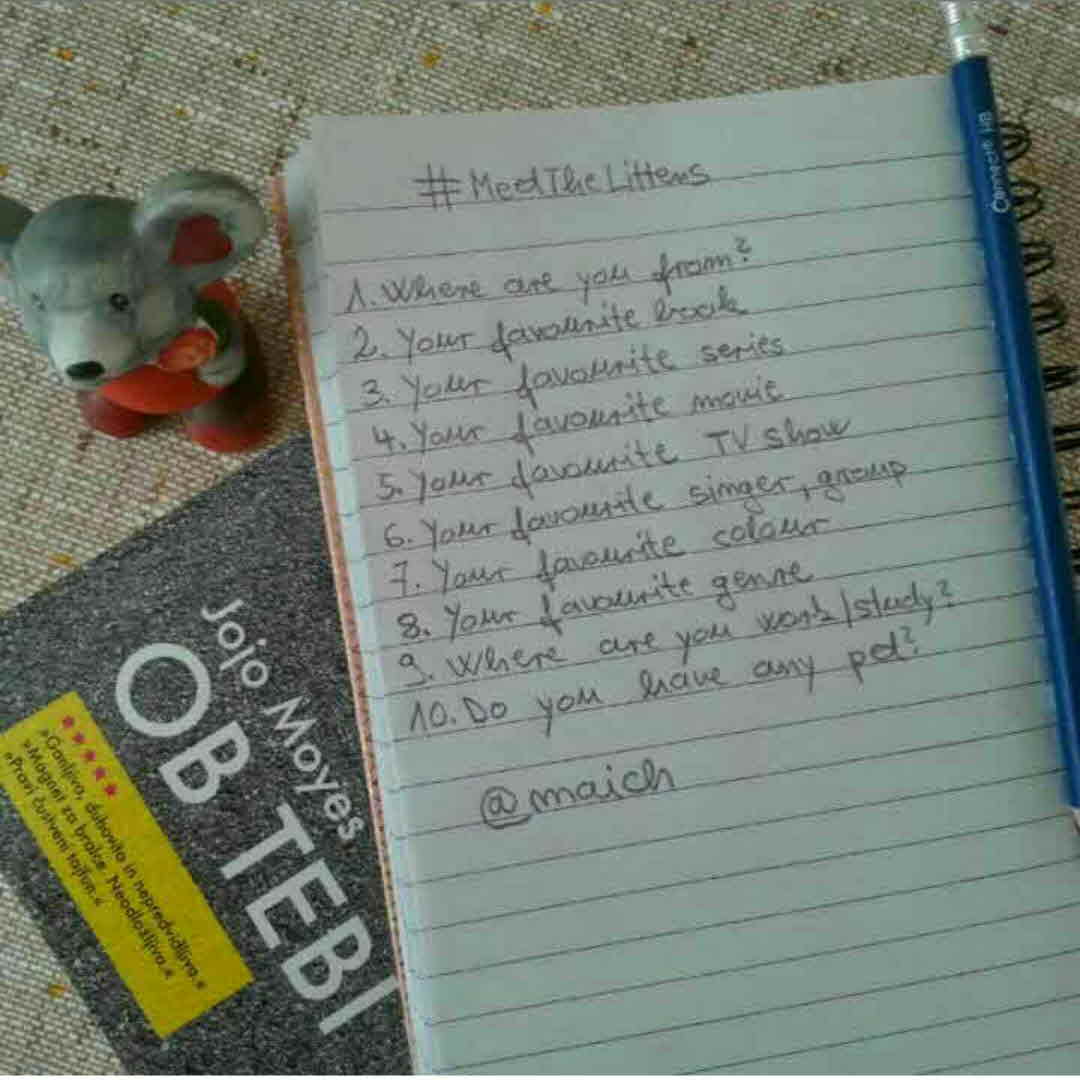 #MeetTheLittens
1. Where are you from?
2. Your favourite book
3. Your favourite series
4. Your favourite movie
5. Your favourite TV show
6. Your favourite singer, group
7. Your favourite colour
8. Your favourite genre
9. Where are you work/study?
10. Do you have any pet?
@maich
Connects HB
Jojo Moyes
OB TEBI
»Ganljivo, duhovito in nepredvidljivo.«
»Magnet za bralce. Neodložljivo.«
»Pravi čustveni tajfun.«